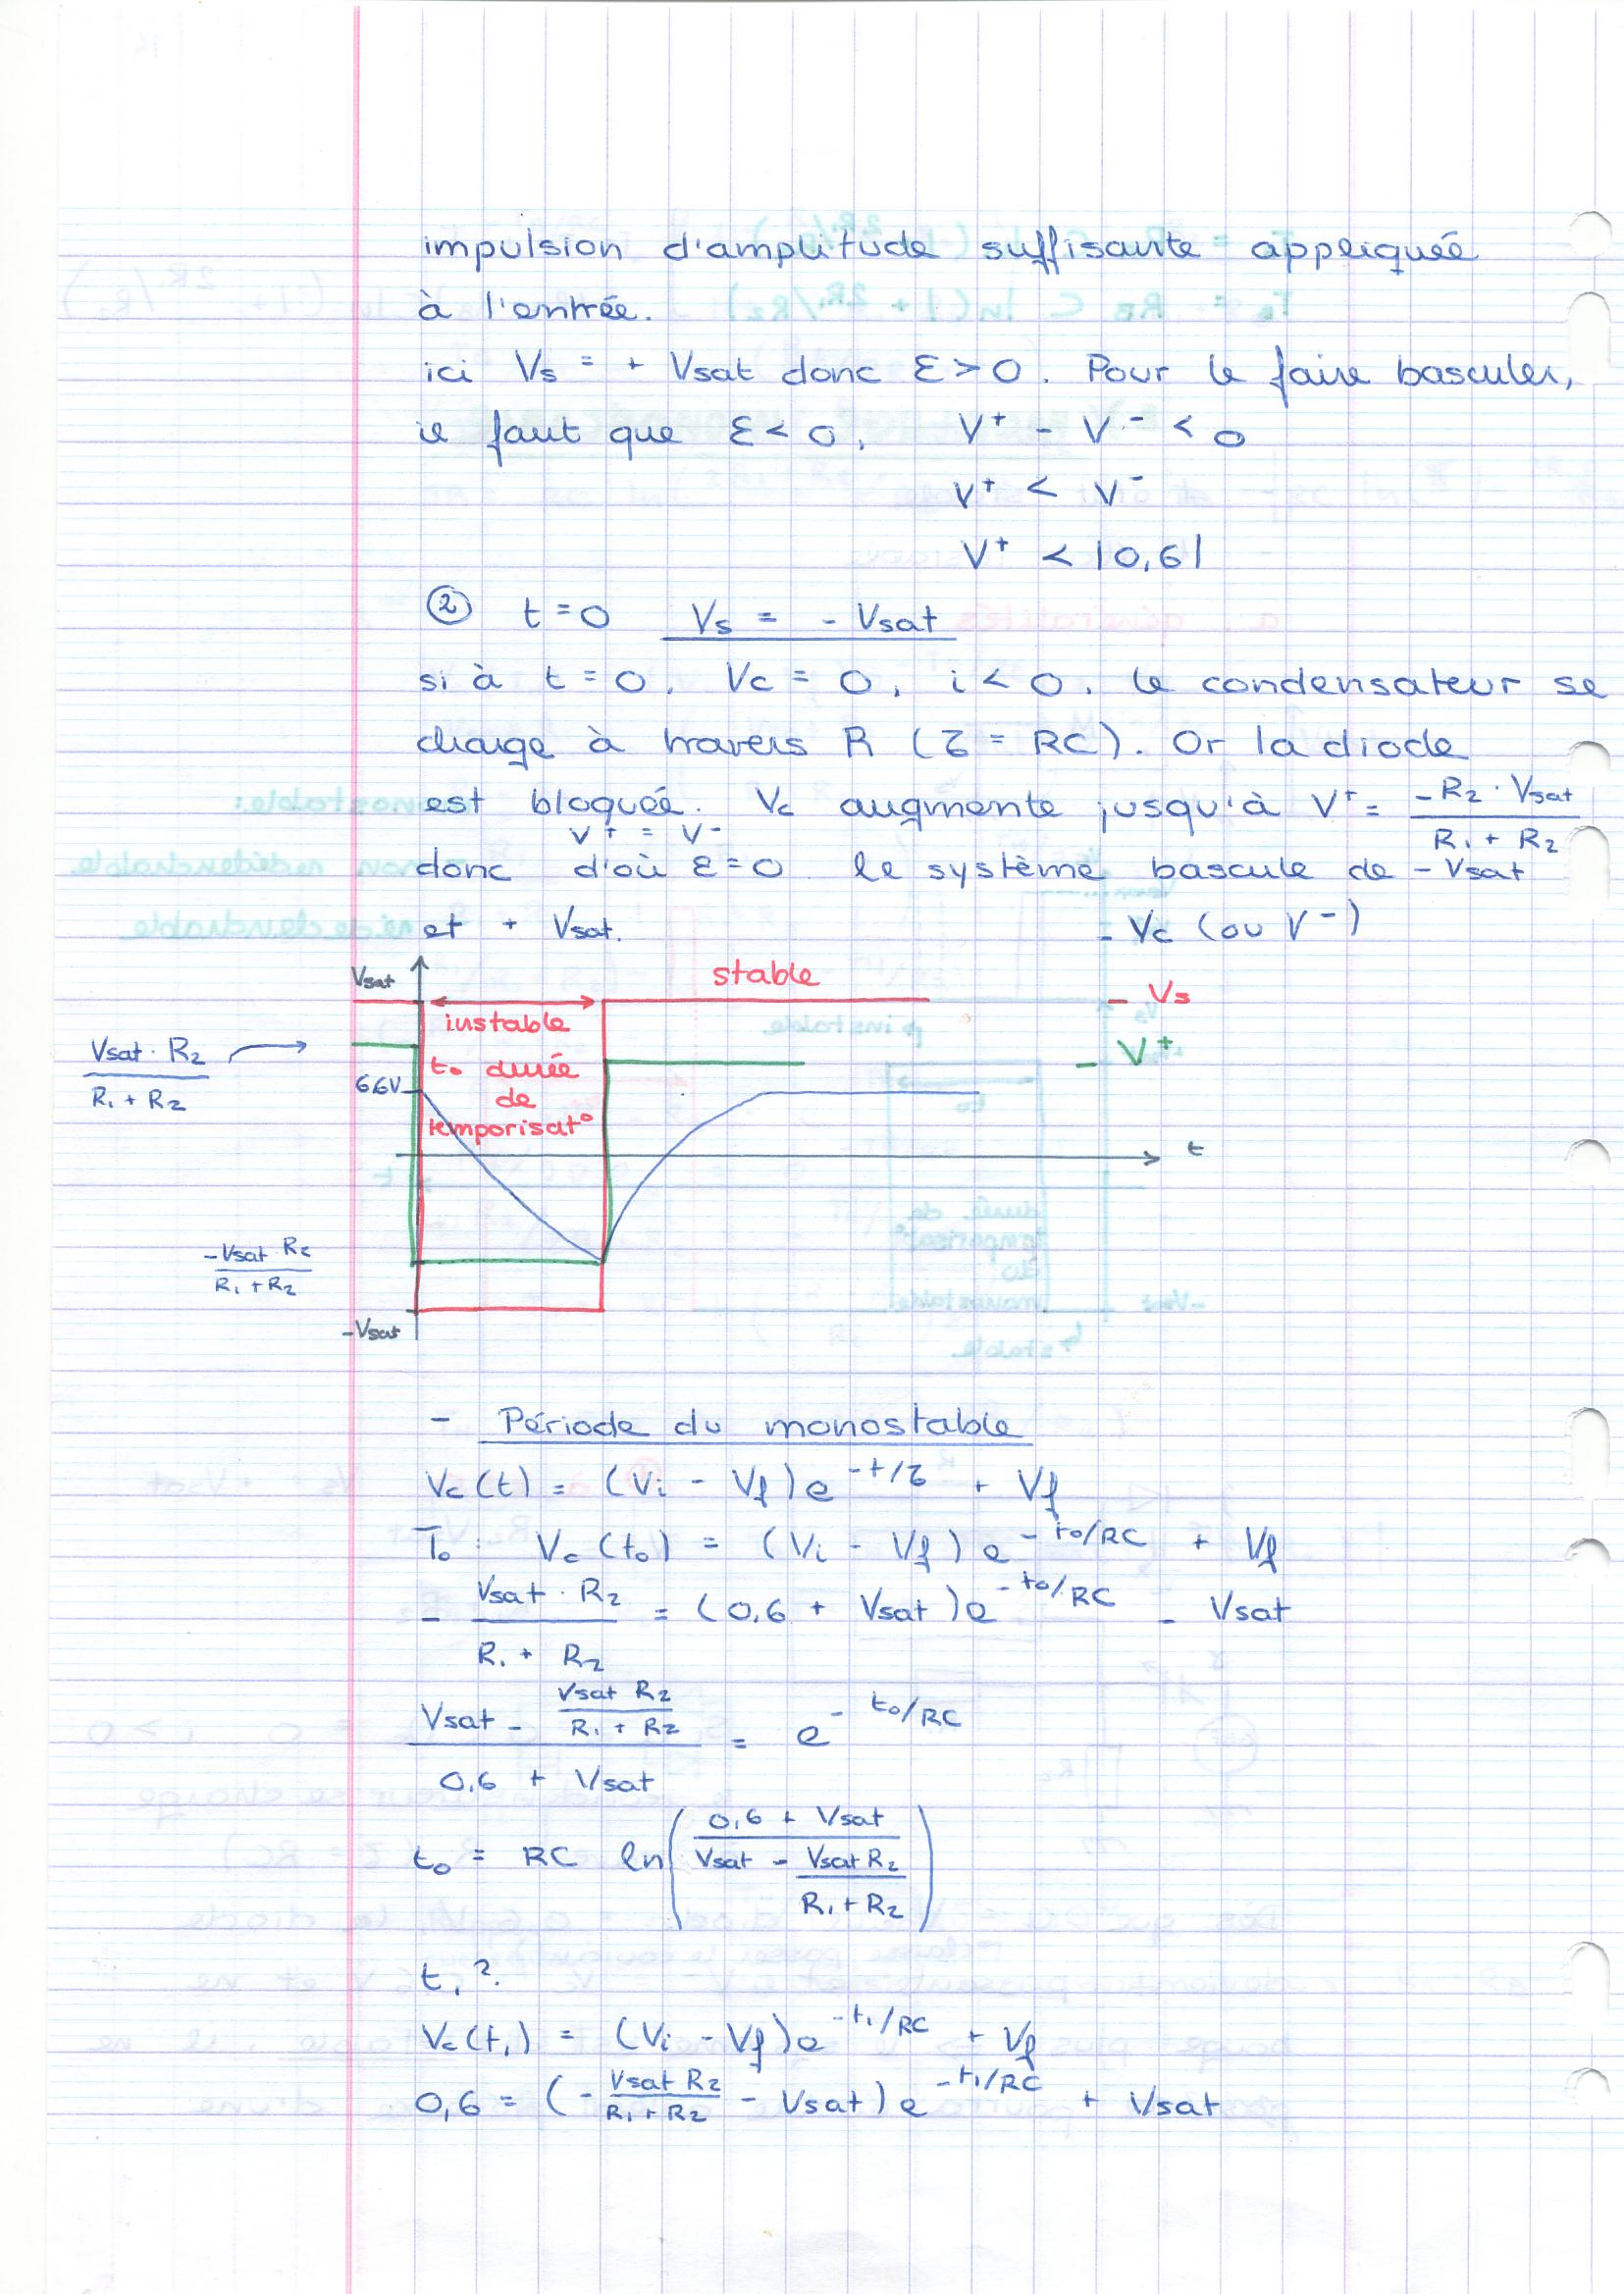 impulsion d'amplitude suffisante appliquée
à l'entrée.
ici Vs = + Vsat donc Ɛ > 0. Pour le faire basculer,
il faut que Ɛ < 0, V⁺ - V⁻ < 0
V⁺ < V⁻
V⁺ < |0,6|
② t = 0 Vs = - Vsat
si à t = 0, Vc = 0, i < 0, le condensateur se
charge à travers R (τ = RC). Or la diode
est bloquée. Vc augmente jusqu'à V⁺ = -R2 · Vsat / R1 + R2
V⁺ = V⁻
donc d'où Ɛ = 0 le système bascule de - Vsat
et + Vsat.
- Vc (ou V⁻)
Vsat
stable
- Vs
instable
Vsat · R2 / R1 + R2
- V⁺
to durée
66V
de
temporisat°
t
-Vsat R2 / R1 + R2
-Vsat
- Période du monostable
Vc(t) = (Vi - Vf)e^-t/τ + Vf
To : Vc(to) = (Vi - Vf)e^-to/RC + Vf
- Vsat · R2 / R1 + R2 = (0,6 + Vsat)e^-to/RC - Vsat
Vsat - Vsat R2 / R1 + R2 / 0,6 + Vsat = e^-to/RC
to = RC ln(0,6 + Vsat / Vsat - Vsat R2 / R1 + R2)
t1 ?
Vc(t1) = (Vi - Vf)e^-t1/RC + Vf
0,6 = (- Vsat R2 / R1 + R2 - Vsat)e^-t1/RC + Vsat